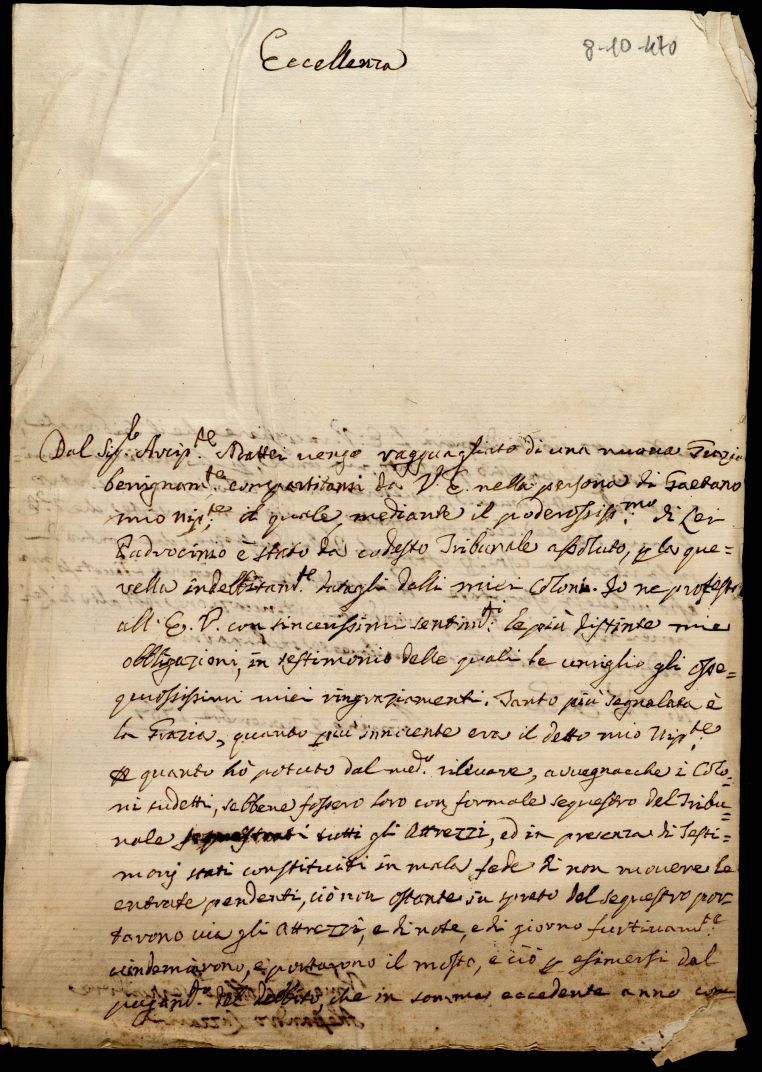 8-10-470
Eccellenza
Dal Sig.r Arcip.te Mattei vengo ragguagliato di una nuova Grazia
benignam.te compartitami da V. E. nella persona di Gaetano
mio nip.te il quale, mediante il poderossiss.mo di Lei
Padrocinio è stato da codesto Tribunale assoluto, p la que=
rella indebitam.te datagli dalli miei Coloni. Io ne protesto
all' E. V. con sincerissimi sentim.ti le più distinte mie
obbligazioni, in testimonio delle quali le umiglio gli osse=
quiosissimi miei ringraziamenti. Tanto più segnalata è
la Grazia, quanto più innocente era il detto mio Nip.te
p quanto hò potuto dal med.o rilevare, avvegnacche i Colo=
ni sudetti, sebbene fossero loro con formale sequestro del Tribu=
nale tutti gli Attrezzi, ed in presenza di Testi=
monj stati constituiti in mala fede di non movere le
entrate pendenti, ciò non ostante in sprato del sequestro por=
tarono via gli Attrezzi, e di note, e di giorno furtivam.te
vindemiarono, e portarono il mosto, e ciò p esimersi dal
pagam.to del debbito, che in somma eccedente anno con=